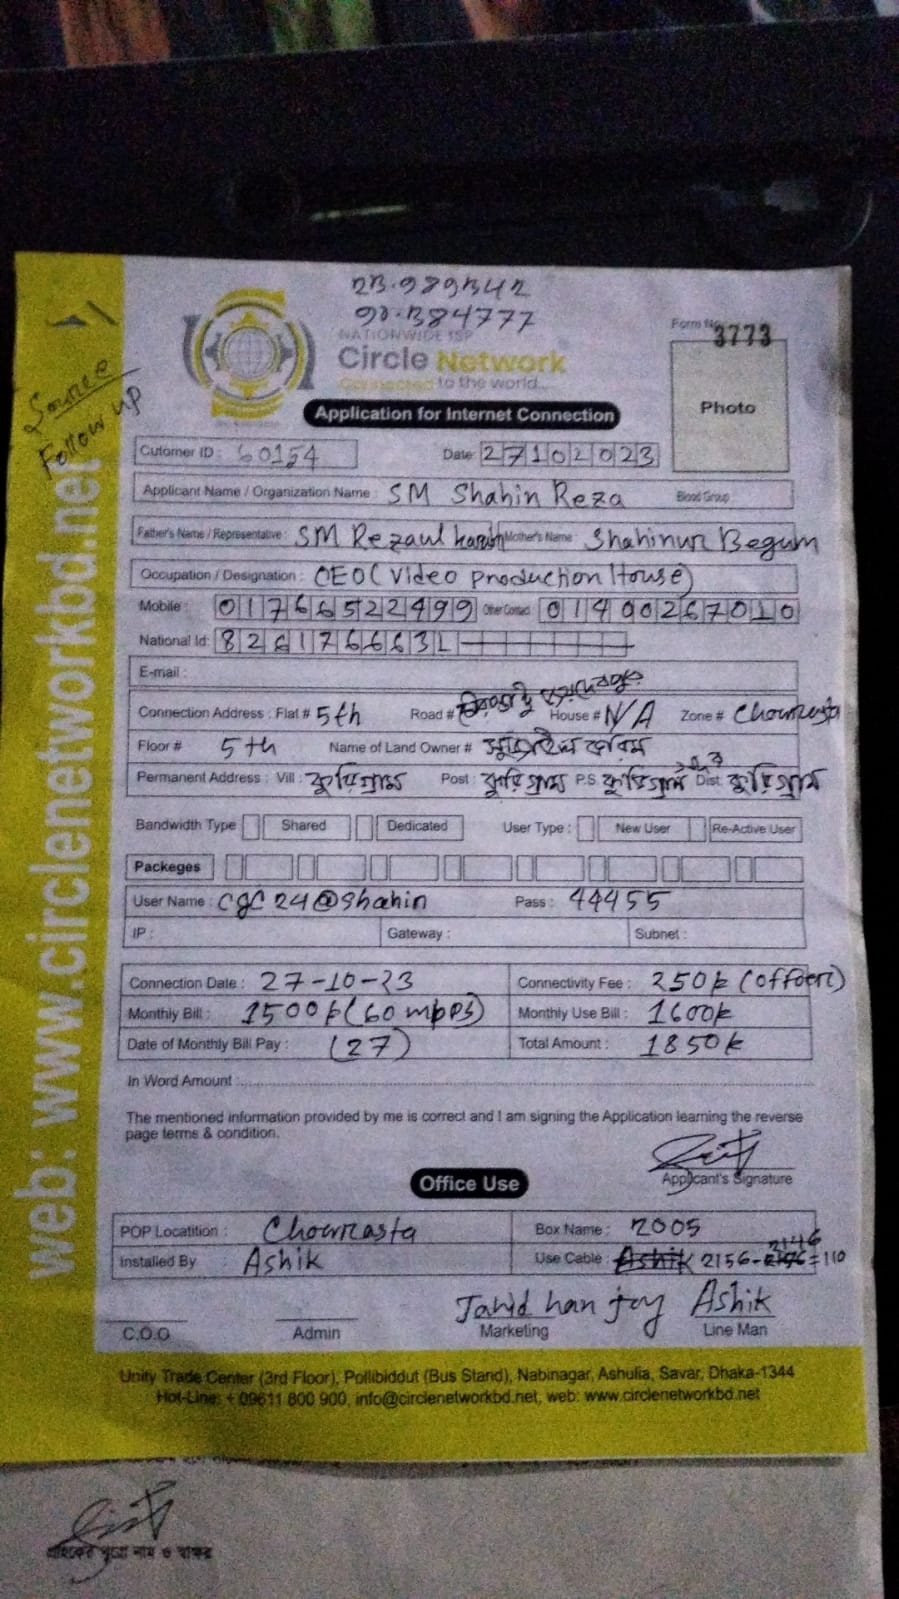 23.989342
90.384777
NATIONWIDE ISP
Form No
3773
Circle Network
Connected to the world...
Source
Follow up
Photo
Application for Internet Connection
Cutomer ID : 60154 Date: 27102023
Applicant Name / Organization Name : SM Shahin Reza Blood Group
Father's Name / Representative : SM Rezaul karim Mother's Name : Shahinur Begum
Occupation / Designation : CEO (Video production House)
Mobile : 01766522499 Other Contact 01400267010
National Id: 8261766631
E-mail :
Connection Address : Flat # 5th Road # House # N/A Zone # Chowrasta
Floor # 5th Name of Land Owner #
Permanent Address : Vill : কুড়িগ্রাম Post : কুড়িগ্রাম P.S কুড়িগ্রাম সদর Dist কুড়িগ্রাম
Bandwidth Type Shared Dedicated User Type : New User Re-Active User
Packeges
User Name : cgc24@shahin Pass : 44455
IP : Gateway : Subnet :
Connection Date : 27-10-23 Connectivity Fee : 250৳ (offer)
Monthly Bill : 1500৳ (60 mbps) Monthly Use Bill : 1600৳
Date of Monthly Bill Pay : (27) Total Amount : 1850৳
In Word Amount :
The mentioned information provided by me is correct and I am signing the Application learning the reverse
page terms & condition.
Applicant's Signature
Office Use
POP Locatition : Chowrasta Box Name : 2005
Installed By Ashik Use Cable : Ashik 2156-2146=110
Jahid han joy Ashik
C.O.O Admin Marketing Line Man
Unity Trade Center (3rd Floor), Pollibiddut (Bus Stand), Nabinagar, Ashulia, Savar, Dhaka-1344
Hot-Line: + 09611 800 900, info@circlenetworkbd.net, web: www.circlenetworkbd.net
web: www.circlenetworkbd.net
গ্রাহকের পুরো নাম ও স্বাক্ষর